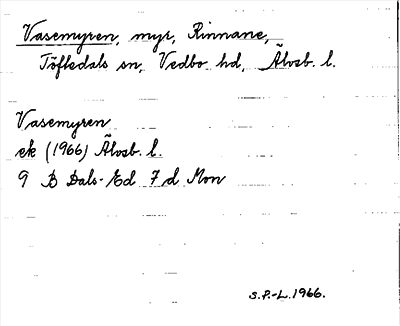 Vasemyren, myr, Rinnane,
Töftedals sn, Vedbo hd, Älvsb. l.
Vasemyren
ek (1966) Älvsb. l.
9 B Dals-Ed 7 d Mon
S.P.-L.1966.